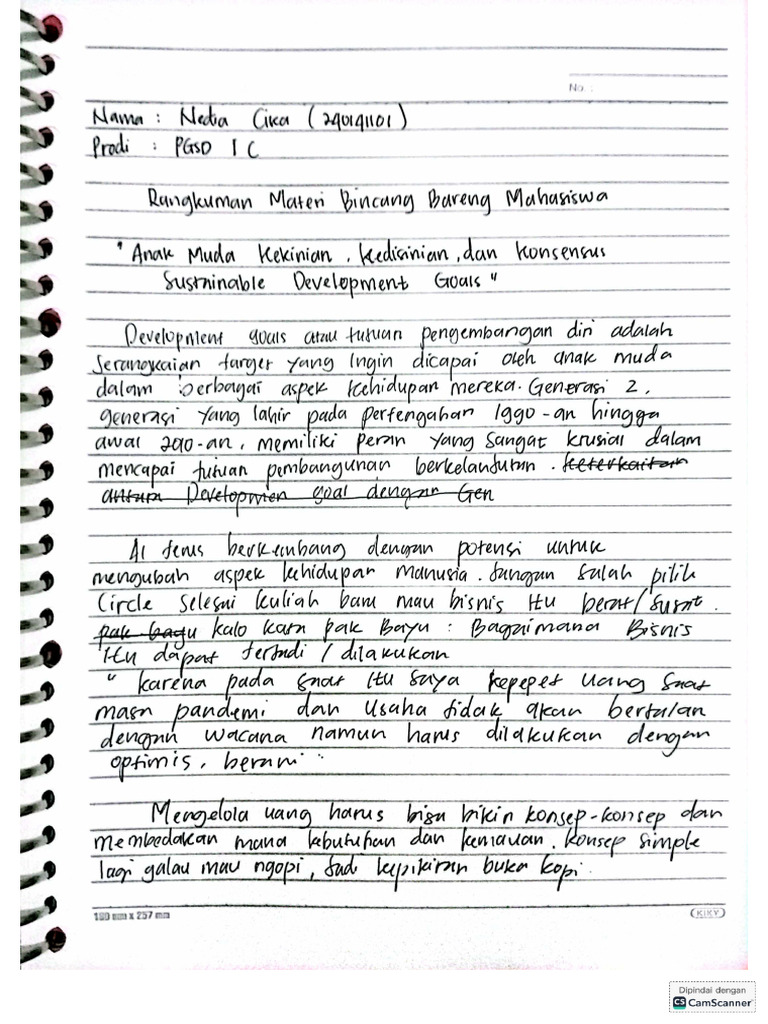 No.:
Nama : Nedia Cika (240141101)
Prodi : PGSD 1 C
Rangkuman Materi Bincang Bareng Mahasiswa
" Anak Muda Kekinian, Kedisinian, dan Konsensus
Sustainable Development Goals "
Development goals atau tujuan pengembangan diri adalah
Serangkaian target yang ingin dicapai oleh anak muda
dalam berbagai aspek kehidupan mereka. Generasi Z,
generasi yang lahir pada pertengahan 1990-an hingga
awal 2010-an, memiliki peran yang sangat krusial dalam
mencapai tujuan pembangunan berkelanjutan. keterkaitan
antara Developmen goal dengan Gen
AI terus berkembang dengan potensi untuk
mengubah aspek kehidupan manusia. Jangan salah pilih
Circle selesai kuliah baru mau bisnis itu berat/
pak bayu kalo kata pak Bayu : Bagaimana Bisnis
itu dapat terjadi / dilakukan
" karena pada saat itu saya kepepet uang saat
masa pandemi dan usaha tidak akan berjalan
dengan wacana namun harus dilakukan dengan
optimis, berani "
Mengelola uang harus bisa bikin konsep-konsep dan
membedakan mana kebutuhan dan kemauan. konsep simple
lagi galau mau ngopi, Jadi kepikiran buka kopi.
180 mm x 257 mm
KIKY
Dipindai dengan
CS CamScanner